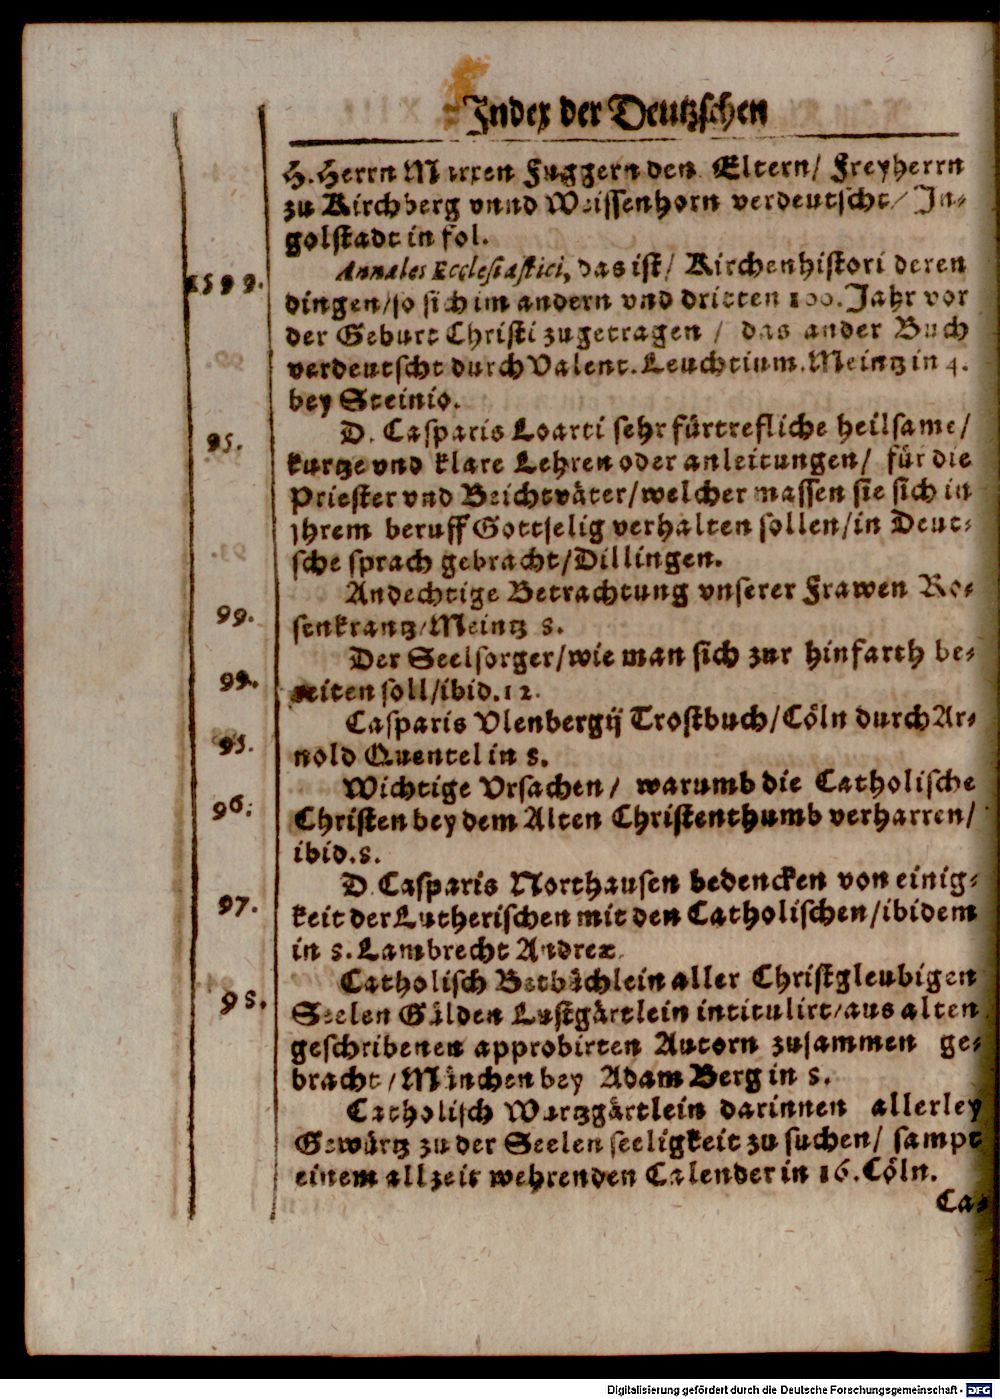 Index der Deutzschen
H. Herrn Marxen Fuggern den Eltern/ Freyherrn
zu Kirchberg vnnd Weissenhorn verdeutscht/ In-
golstadt in fol.
1599. Annales Ecclesiastici, das ist/ Kirchenhistori deren
dingen/so sich im andern vnd dritten 100. Jahr vor
der Geburt Christi zugetragen / das ander Buch
verdeutscht durch Valent. Leuchtium. Meintz in 4.
bey Steinio.
95. D. Casparis Loarti sehr fürtrefliche heilsame/
kurtze vnd klare Lehren oder anleitungen/ für die
Priester vnd Beichtväter/welcher massen sie sich in
jhrem beruff Gottselig verhalten sollen/in Deut-
sche sprach gebracht/Dillingen.
Andechtige Betrachtung vnserer Frawen Ro-
99. senkrantz/Meintz 8.
Der Seelsorger/wie man sich zur hinfarth be-
99. reiten soll/ibid. 12.
Casparis Vlenbergij Trostbuch/Cöln durch Ar-
95. nold Quentel in 8.
Wichtige Vrsachen/ warumb die Catholische
96. Christen bey dem Alten Christenthumb verharren/
ibid. 8.
D. Casparis Northausen bedencken von einig-
97. keit der Lutherischen mit den Catholischen/ibidem
in 8. Lambrecht Andrex
Catholisch Betbüchlein aller Christgleubigen
98. Seelen Gülden Lustgärtlein intitulirt/aus alten
geschribenen approbirten Autorn zusammen ge-
bracht/München bey Adam Berg in 8.
Catholisch Wurtzgärtlein darinnen allerley
Gewürtz zu der Seelen seeligkeit zu suchen/ sampt
einem allzeit wehrenden Calender in 16. Cöln.
Ca-
Digitalisierung gefördert durch die Deutsche Forschungsgemeinschaft - DFG